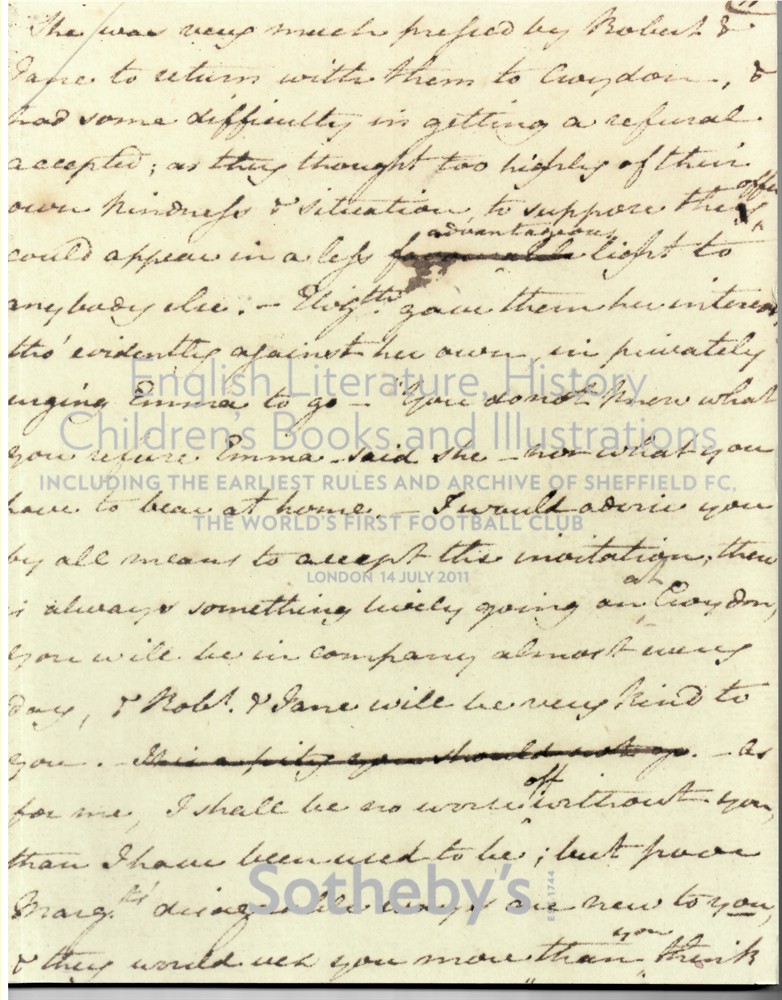 11
She was very much pressed by Robert &
Jane to return with them to Croydon, &
had some difficulty in getting a refusal
accepted; as they thought too highly of their
own kindness & situation, to suppose the offer
could appear in a less favourable advantageous light to
anybody else. – Elizth. gave them her interest
tho' evidently against her own, in privately
urging Emma to go – "You do not know what
you refuse Emma – said she – nor what you
have to bear at home. – I would advise you
by all means to accept the invitation, there
is always something lively going on at Croydon,
you will be in company almost every
day, & Robt. & Jane will be very kind to
you. – It is a pity you should not go. – As
for me, I shall be no worse off without you,
than I have been used to be; but poor
Margts. disagreable ways are new to you,
& they would vex you more than you think
English Literature, History
Children's Books and Illustrations
INCLUDING THE EARLIEST RULES AND ARCHIVE OF SHEFFIELD FC,
THE WORLD'S FIRST FOOTBALL CLUB
LONDON 14 JULY 2011
Sotheby's
EST. 1744